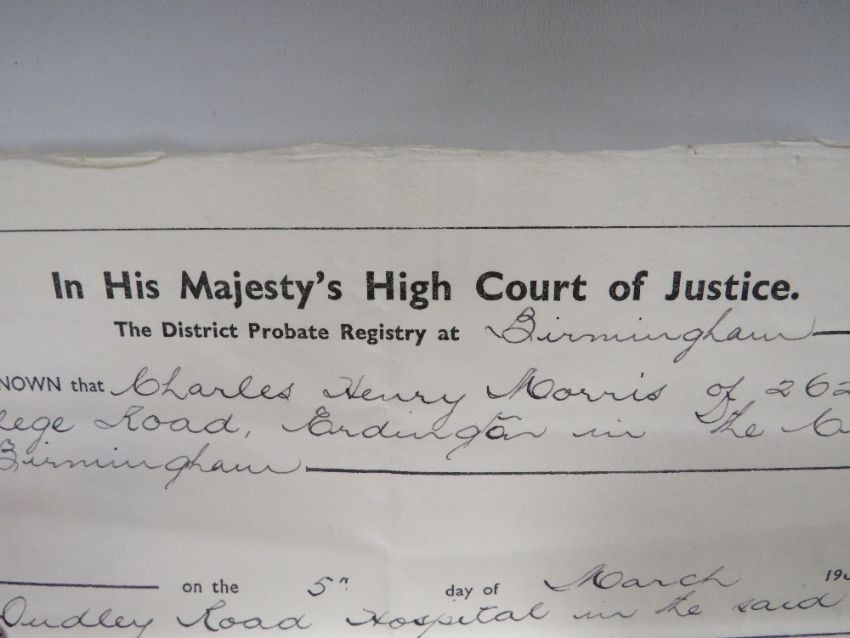 In His Majesty's High Court of Justice.
The District Probate Registry at Birmingham
NOWN that Charles Henry Morris of 262
lege Road, Erdington in The C
Birmingham
on the 5th day of March 19
Dudley Road Hospital in the said